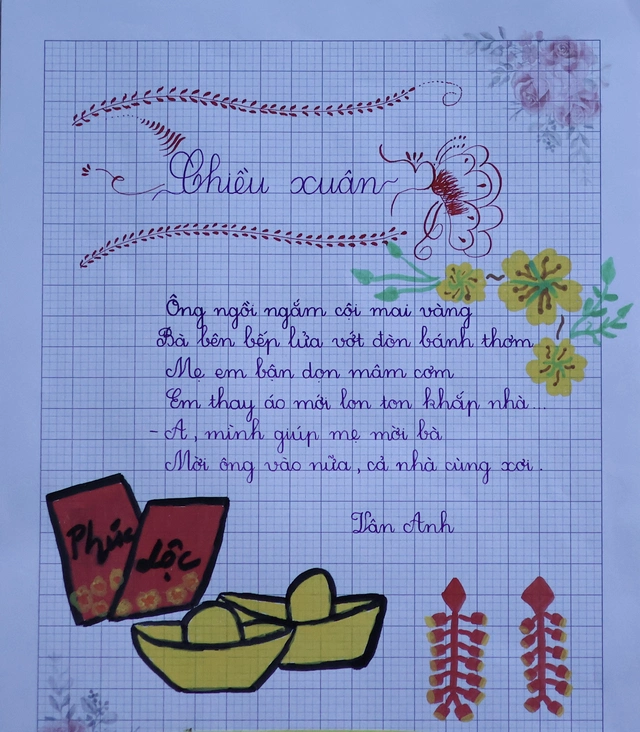 Chiều xuân
Ông ngồi ngắm cội mai vàng
Bà bên bếp lửa vớt đòn bánh thơm
Mẹ em bận dọn mâm cơm
Em thay áo mới lon ton khắp nhà...
- A, mình giúp mẹ mời bà
Mời ông vào nữa, cả nhà cùng xơi.
Vân Anh
Phúc
Lộc